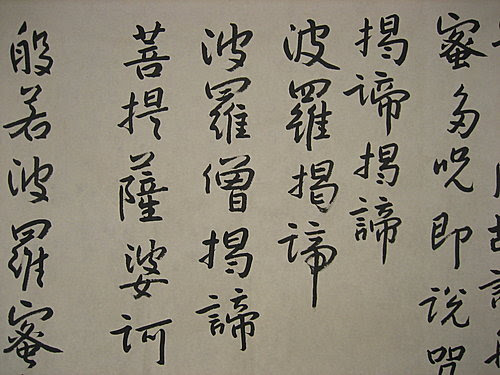 蜜多呪即説咒
揭諦揭諦
波羅揭諦
波羅僧揭諦
菩提薩婆訶
般若波羅蜜